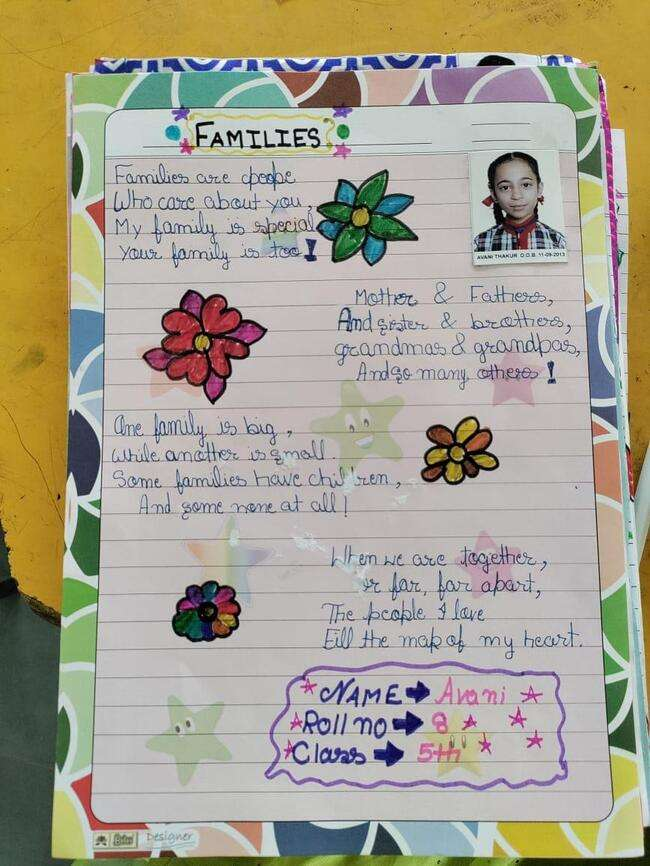 FAMILIES
Families are people
Who care about you,
My family is special
Your family is too!
AVANI THAKUR D.O.B. 11-09-2013
Mother & Fathers,
And sister & brothers,
grandmas & grandpas,
And so many others!
One family is big,
while another is small.
Some families have children,
And some none at all!
When we are together,
or far, far apart,
The people I love
Fill the map of my heart.
NAME → Avani
Roll no → 8
Class → 5th
Designer